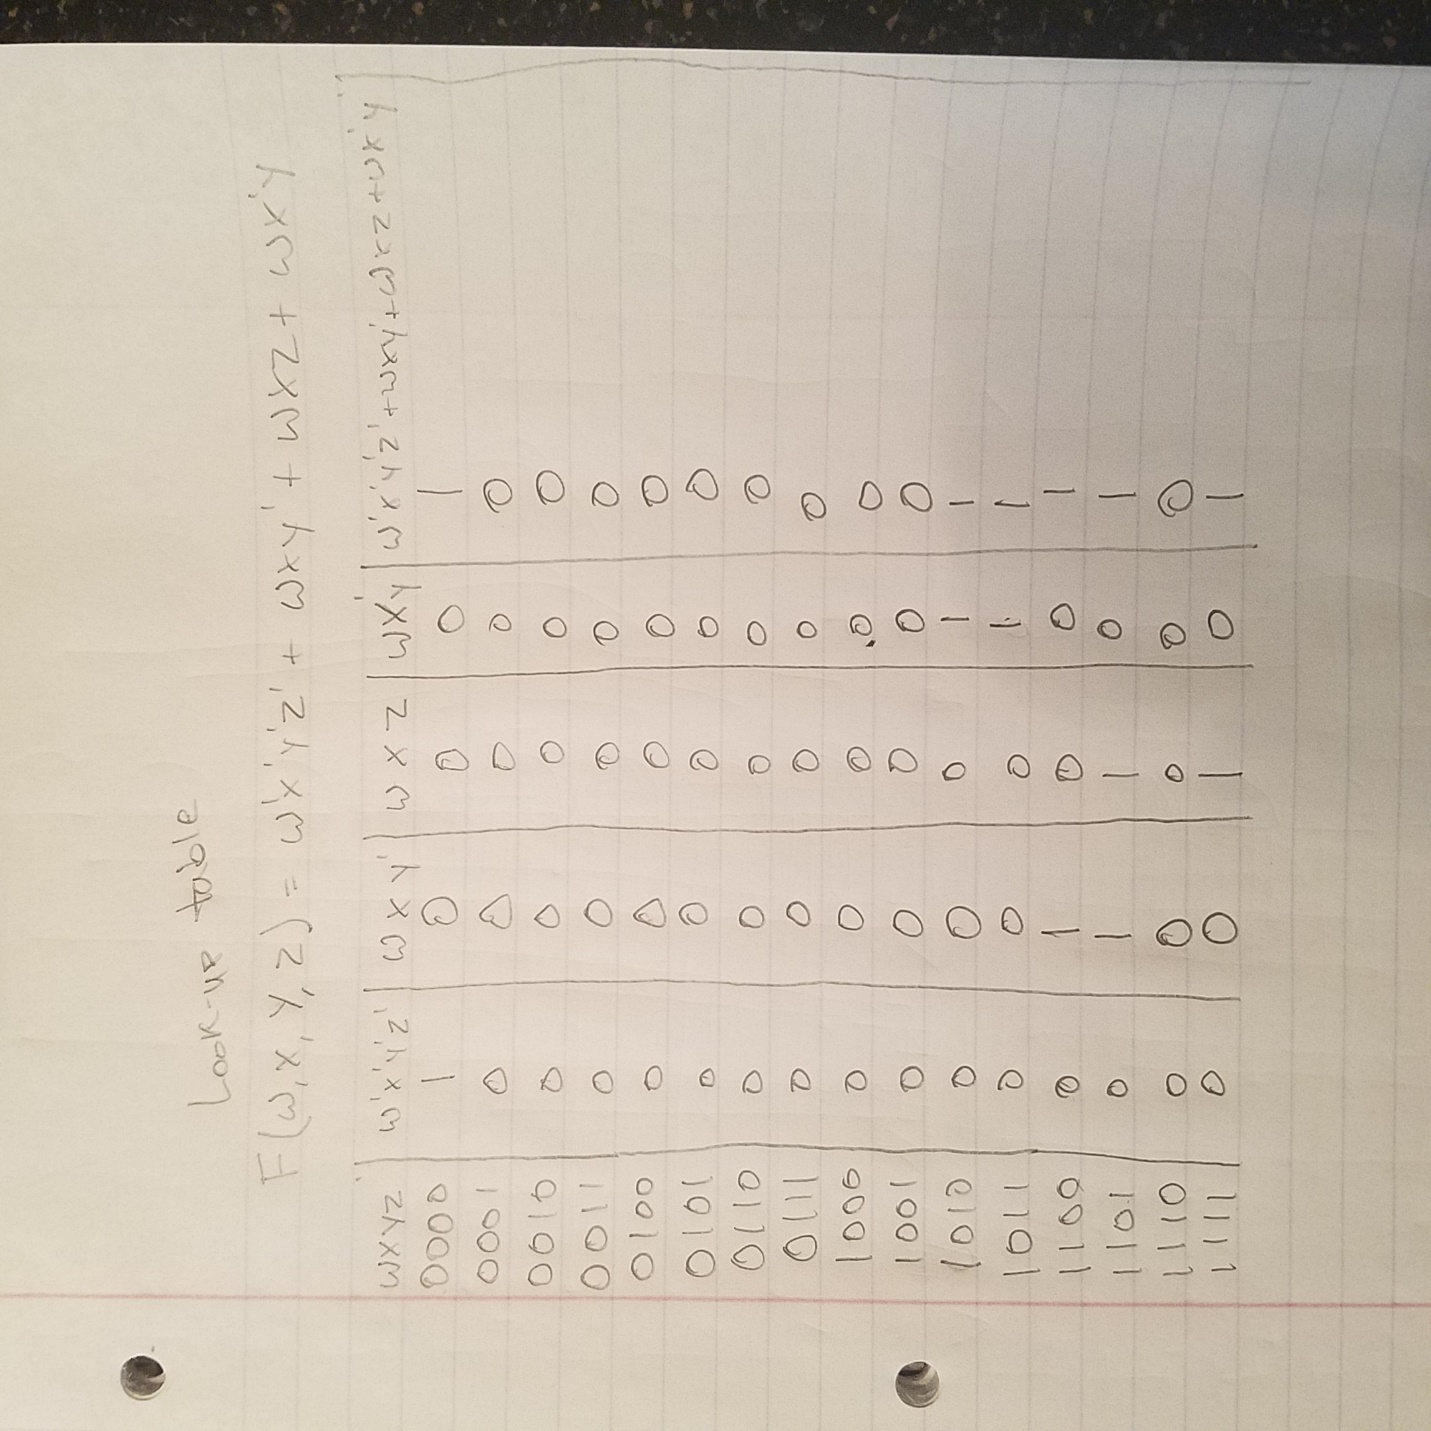 Look-up table
F(w,x,y,z) = w'x'y'z' + wxy' + wxz + wx'y
wxyz | w'x'y'z' | wxy' | wxz | wx'y | w'x'y'z' + wxy' + wxz + wx'y
0000 1 0 0 0 1
0001 0 0 0 0 0
0010 0 0 0 0 0
0011 0 0 0 0 0
0100 0 0 0 0 0
0101 0 0 0 0 0
0110 0 0 0 0 0
0111 0 0 0 0 0
1000 0 0 0 0 0
1001 0 0 0 0 0
1010 0 0 0 1 1
1011 0 0 0 1 1
1100 0 1 0 0 1
1101 0 1 1 0 1
1110 0 0 0 0 0
1111 0 0 1 0 1